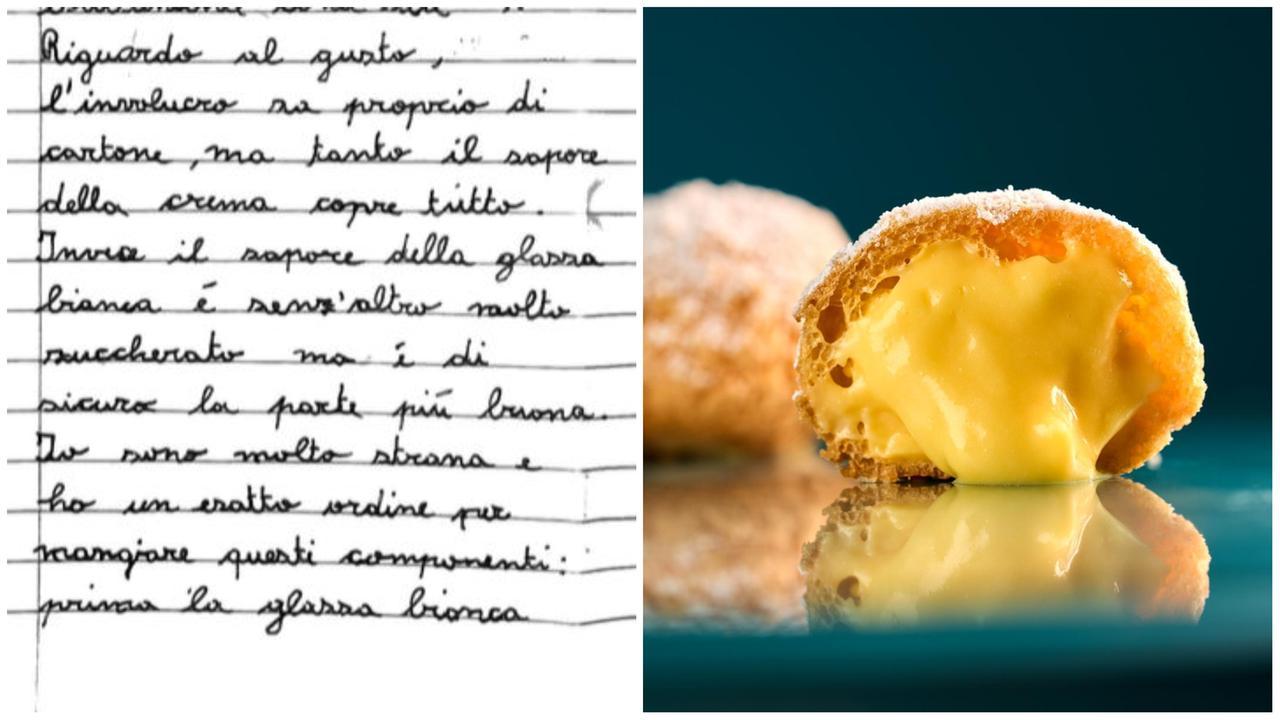 Riguardo al gusto,
l'involucro sa proprio di
cartone, ma tanto il sapore
della crema copre tutto.
Invece il sapore della glassa
bianca é senz'altro molto
zuccherato ma é di
sicuro la parte piú buona.
Io sono molto strana e
ho un esatto ordine per
mangiare questi componenti:
prima la glassa bianca